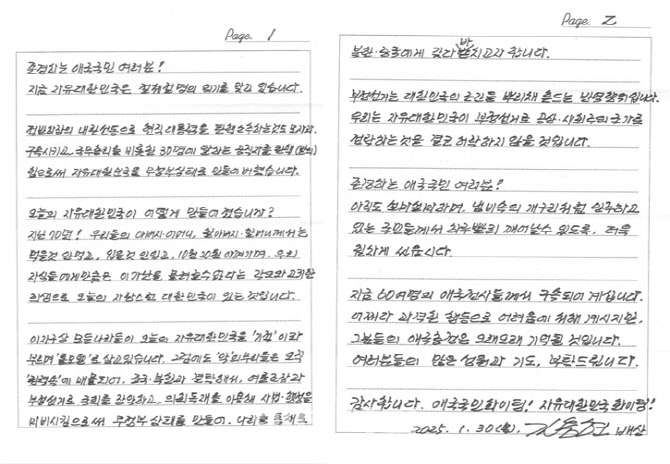 Page. 1
존경하는 애국국민 여러분!
지금 자유대한민국은 절체절명의 위기를 맞고 있습니다.
전비회장의 내란선동으로 현직 대통령을 탄핵소추하는것도 모자라,
구속시키고 국무총리를 비롯한 30명에 달하는 공직자를 탄핵
함으로써 자유대한민국을 무정부상태로 만들어 버렸습니다.
오늘의 자유대한민국이 어떻게 만들어 졌습니까?
지난 70년! 우리들의 아버지·어머니, 할아버지·할머니께서는
먹을것 안먹고, 입을것 안입고, 10원 20원 아껴가며, 우리
자식들에게만큼은 이 가난을 물려줄수 없다는 각오와 고귀한
희생으로 오늘의 자랑스런 대한민국이 있는 것입니다.
이 지구상 모든나라들이 오늘의 자유대한민국을 '기적'이라
부르며 '롤모델'로 삼고있습니다. 그럼에도 '악'의무리들은 오직
에 매몰되어, 중국·북한과 결탁해서, 여론조작과
부정선거로 국회를 장악하고, 의회독재를 이용해 사법·행정을
마비시킴으로써 무정부 상태를 만들어, 나라를 통째로
Page. 2
북한·중국에게 갖다 바치고자 합니다.
부정선거는 대한민국의 근간을 뿌리채 흔드는 반역행위입니다.
우리는 자유대한민국이 부정선거로 공산·사회주의 국가로
전락하는것은 결코 허락하지 않을 것입니다.
존경하는 애국국민 여러분!
아직도 설마설마하며, 냄비속의 개구리처럼 안주하고
있는 국민들께서 하루빨리 깨어날수 있도록, 더욱
힘차게 싸웁시다.
지금 60여명의 애국전사들께서 구속되어 계십니다.
어쩌다 과격한 행동으로 어려움에 처해 계시지만,
그분들의 애국충정은 오래오래 기억될 것입니다.
여러분들의 많은 성원과 기도, 부탁드립니다.
감사합니다. 애국국민화이팅! 자유대한민국 화이팅!
2025. 1. 30(목). 김용현 배상